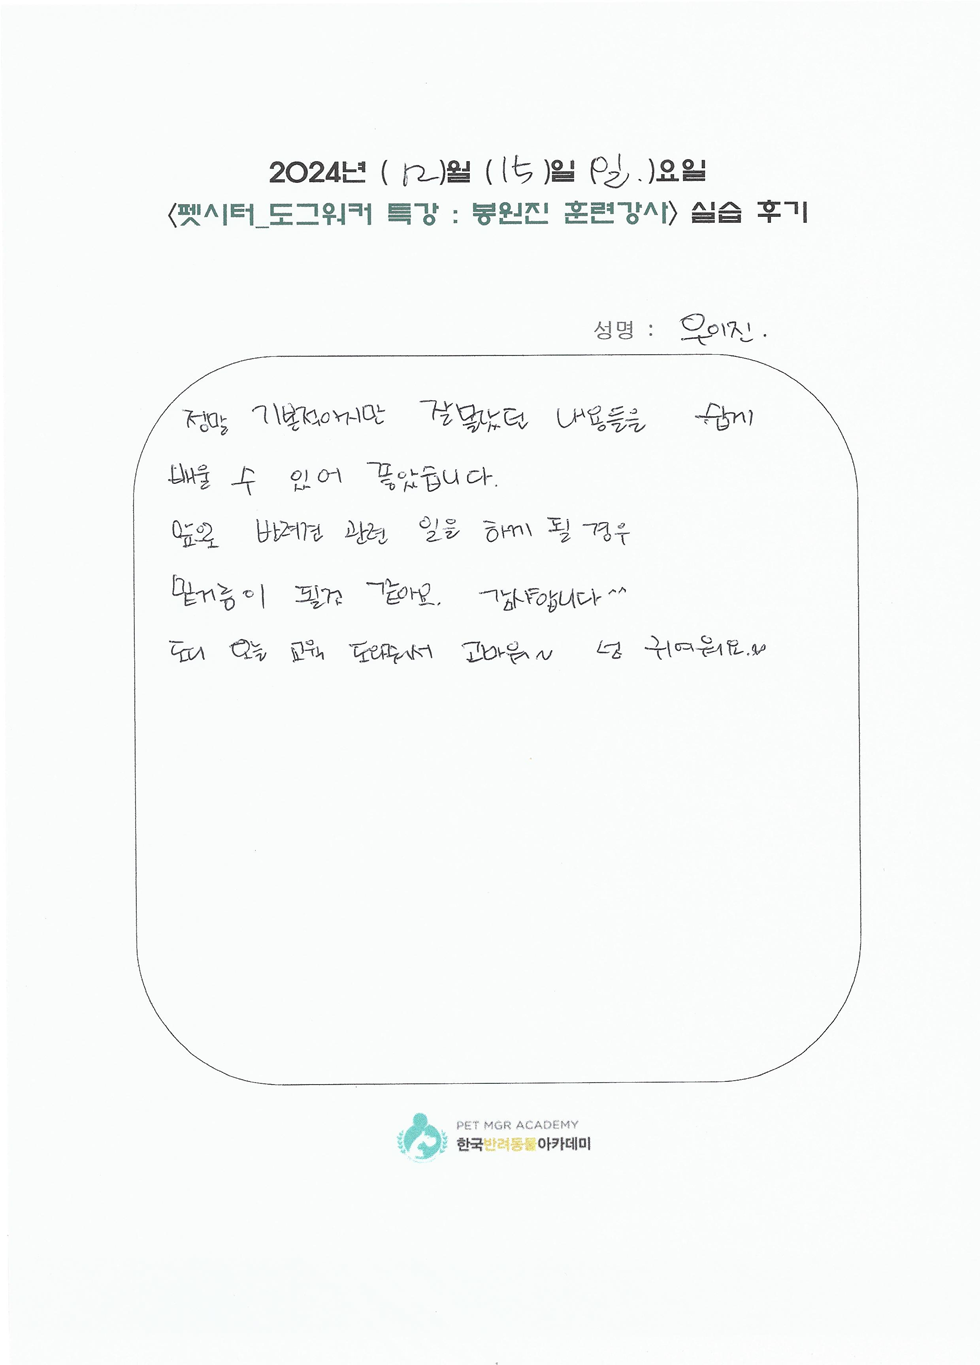 2024년 (12)월 (15)일 (일.)요일
<펫시터_도그워커 특강 : 봉원진 훈련강사> 실습 후기
성명 : 우이진.
정말 기본적이지만 잘몰랐던 내용들을 쉽게
배울 수 있어 좋았습니다.
앞으로 반려견 관련 일을 하게 될 경우
밑거름이 될것 같아요. 감사합니다^^
오늘 교육 도와줘서 고마워~ 넘 귀여워요.~
PET MGR ACADEMY
한국반려동물아카데미